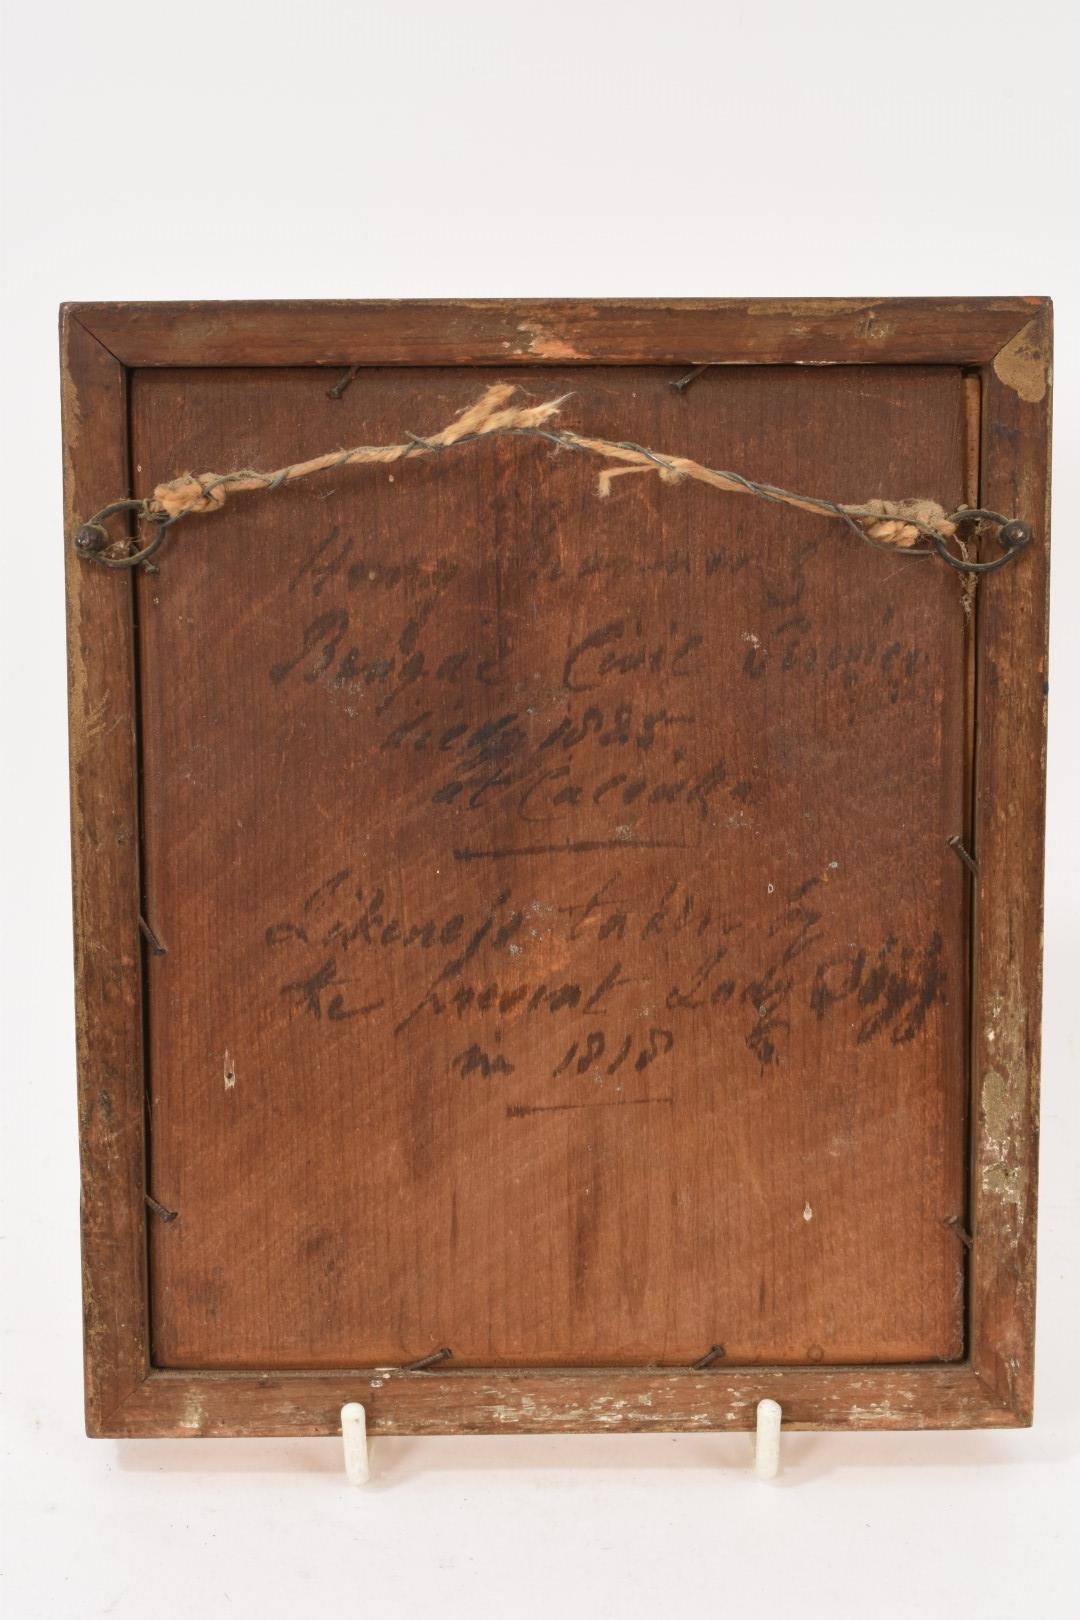 Henry
Bengal Civil Service
died 1825.
at Calcutta
Likeness taken by
the present Lady
in 1818